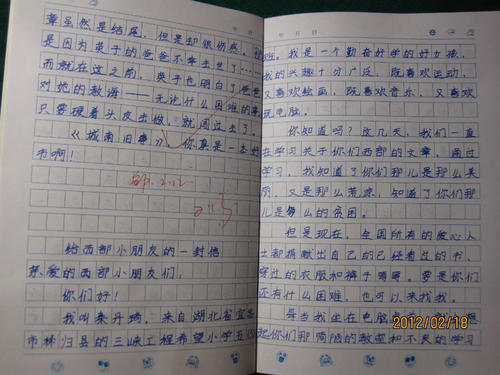 章虽然是结尾，但是却很伤感。
是因为英子的爸爸不幸去世了……
而就在这之前，英子也明白了爸爸
对她的教诲——无论什么困难的事
只要硬着头皮去做，就闯过去了。
《城南旧事》，你真是一本好
书啊！
2.12
给西部小朋友的一封信
亲爱的西部小朋友们，
你们好！
我叫秦丹琦，来自湖北省宜昌
市秭归县的三峡工程希望小学五
班。我是一个勤奋好学的好女孩，
我的兴趣十分广泛，既喜欢运动，
又喜欢绘画，既喜欢音乐，又喜欢
玩电脑。
你知道吗？这几天，我们一直
在学习关于你们西部的文章，通过
学习，我知道了你们那儿是那么美
丽，又是那么荒凉，知道了你们那
儿是多么的贫困。
但是现在，全国所有的爱心人
士都捐献出自己的已经看过的书、
穿过的衣服和裤子嘴唇。要是你们
还有什么困难，也可以来找我。
每当我坐在电脑
起你们那简陋的教室和不良的学习
2012/02/18